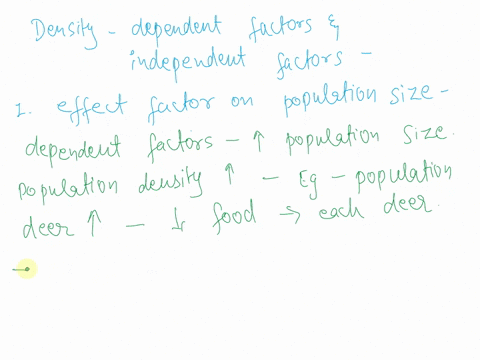 Density - dependent factors &
independent factors -
1. effect factor on population size -
dependent factors - ↑ population size.
population density ↑ - Eg - population
deer ↑ - ↓ food → each deer.